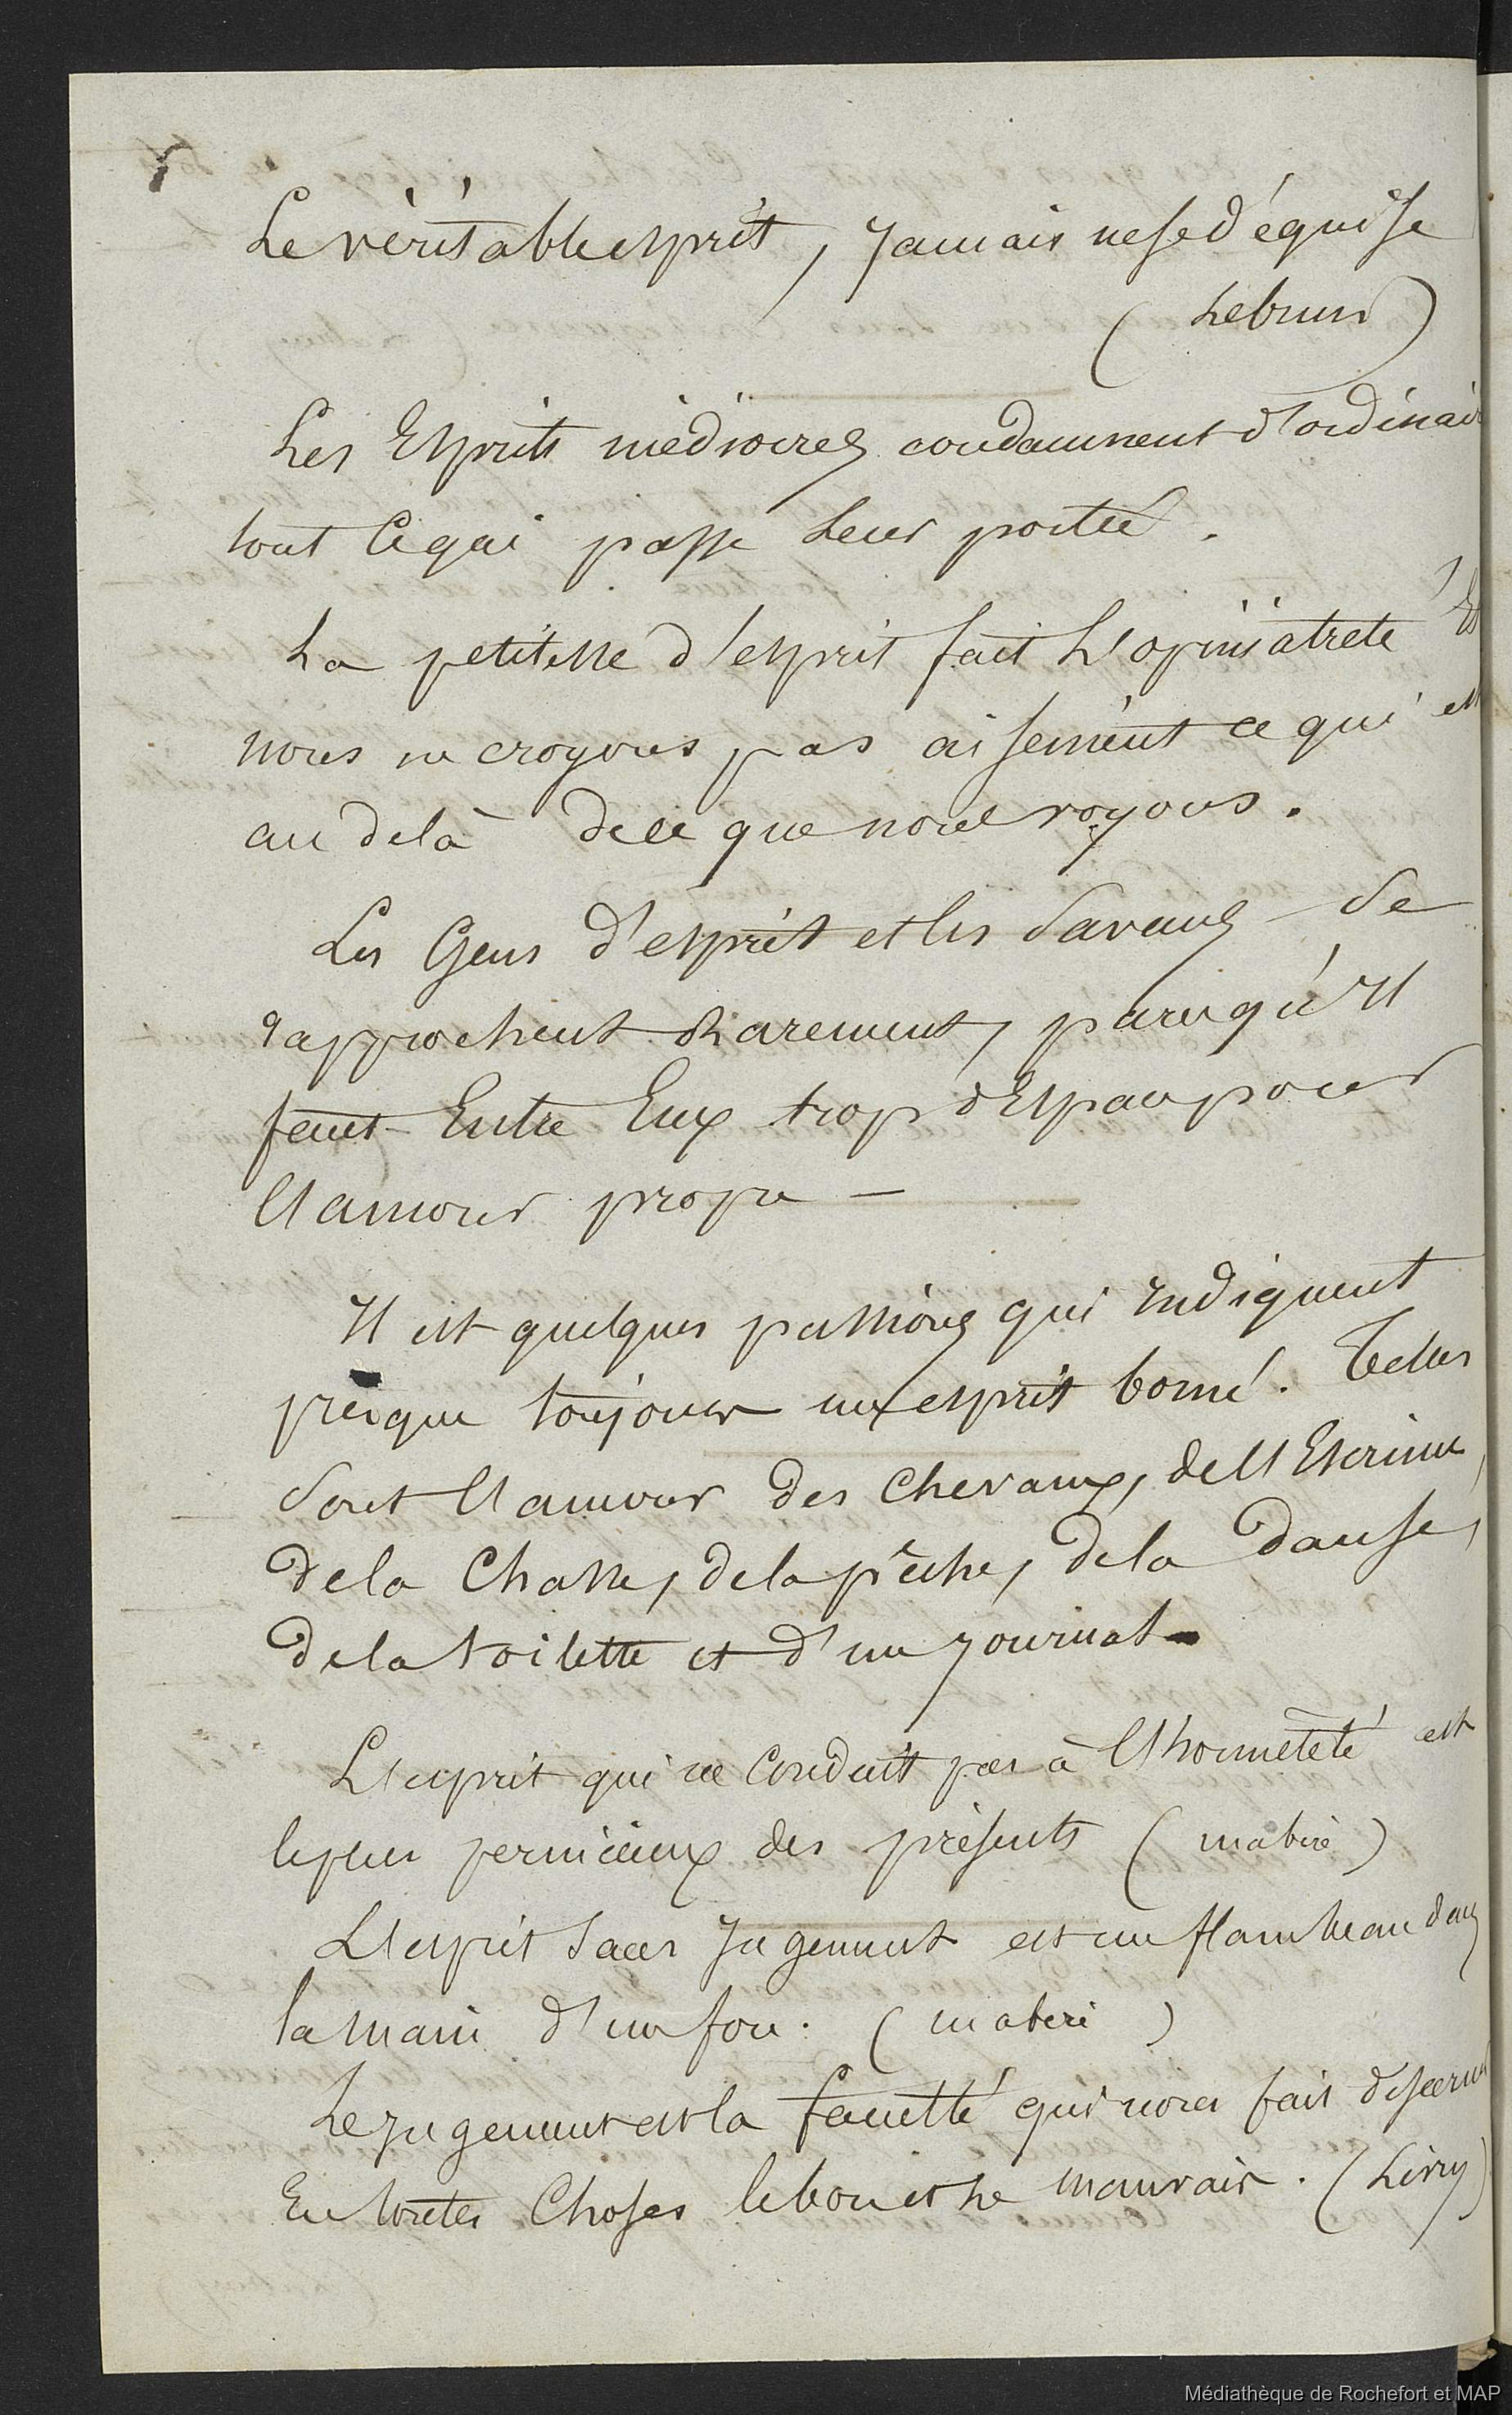 Le véritable esprit, jamais ne se déguise
(Lebrun)
Les Esprits médiocres condamnent d'ordinair
tout ce qui passe leur portée.
La petitesse d'esprit fait l'opiniatreté Et
nous ne croyons pas aisement ce qui est
au delà de ce que nous voyons.
Les Gens d'esprit et les Savans se
rapprochent Rarement, parce qu'il
faut Entre Eux trop d'Espace pour
l'amour propre —
Il est quelques passions qui indiquent
presque toujours un esprit borné. Telles
sont l'amour des chevaux, de l'Escrime,
de la Chasse, de la pêche, de la danse,
de la toilette et d'un journal.
L'esprit qui ne Conduit pas à l'honnêteté est
le plus pernicieux des présents (mabiré)
L'esprit sans jugement est un flambeau dans
la main d'un fou. (mabiré)
Le jugement est la faculté qui nous fait discerner
En toutes Choses le bon et le mauvais. (Livry)
Médiathèque de Rochefort et MAP